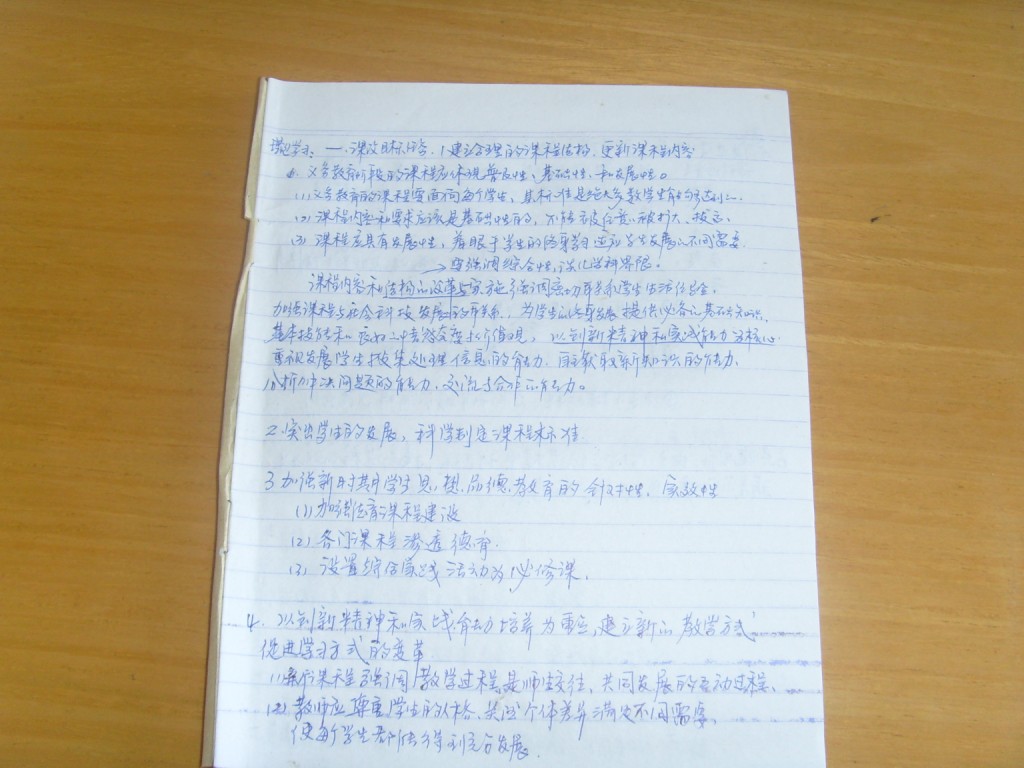 一、课改目标内容. 1.建立合理的课程结构, 更新课程内容
义务教育阶段的课程应体现普及性、基础性和发展性。
(1) 义务教育的课程要面向每个学生, 其标准是绝大多数学生能够达到的.
(2) 课程内容和要求应该是基础性的, 不能被任意扩大、拔高.
(3) 课程应具有发展性, 着眼于学生的终身学习 适应学生发展的不同需要.
强调综合性, 淡化学科界限。
课程内容和结构的改革与实施强调密切联系学生生活
加强课程与社会科技发展的联系, 为学生的终身发展提供必备的基础知识,
基本技能和良好的情感态度与价值观, 以创新精神和实践能力为核心
重视发展学生搜集处理信息的能力、自主获取新知识的能力、
分析解决问题的能力、交流与合作的能力。
2.突出学生的发展, 科学制定课程标准
3 加强新时期学生思想品德教育的针对性、实效性
(1) 加强德育课程建设
(2) 各门课程渗透德育.
(3) 设置综合实践活动为必修课.
4. 以创新精神和实践能力培养为重点, 建立新的教学方式
促进学习方式的变革
(1) 新课程强调教学过程是师生交往、共同发展的互动过程.
(2) 教师应尊重学生的人格、关注个体差异 满足不同需要,
使每个学生都能得到充分发展.